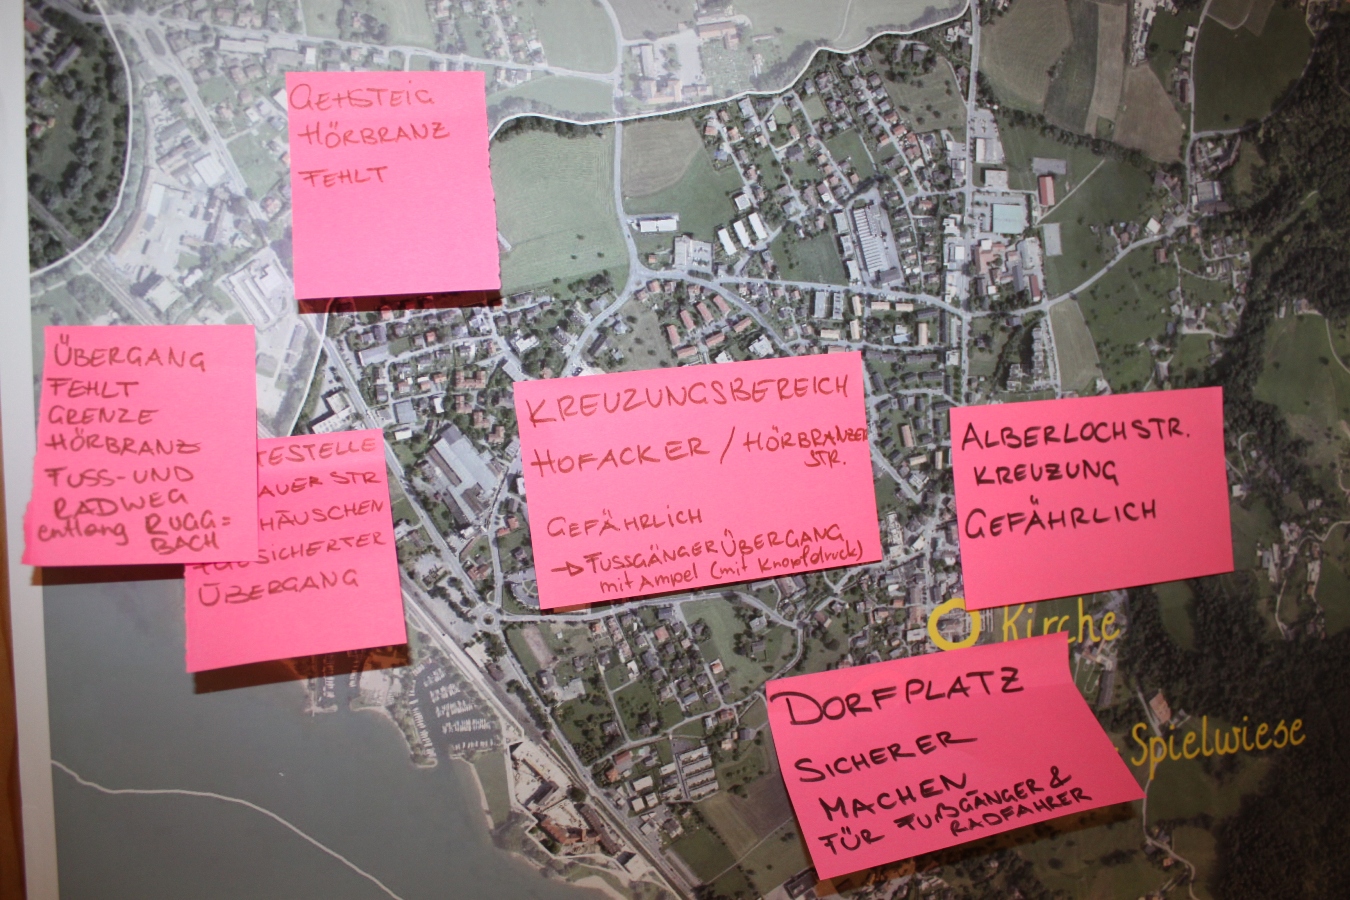 GEHSTEIG
HÖRBRANZ
FEHLT
ÜBERGANG
FEHLT
GRENZE
HÖRBRANZ
FUSS-UND
RADWEG
entlang RUGG=
BACH
TESTELLE
AUER STR
HÄUSCHEN
SICHERTER
ÜBERGANG
KREUZUNGSBEREICH
HOFACKER / HÖRBRANZER
STR.
GEFÄHRLICH
→ FUSSGÄNGERÜBERGANG
mit Ampel (mit Knopfdruck)
ALBERLOCHSTR.
KREUZUNG
GEFÄHRLICH
Kirche
DORFPLATZ
SICHERER
MACHEN
FÜR FUßGÄNGER &
RADFAHRER
Spielwiese